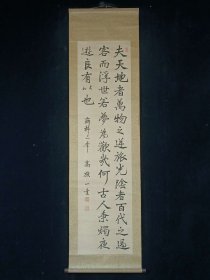 夫天地者萬物之逆旅光陰者百代之過
客而浮世若夢為歡幾何古人秉燭夜
遊良有以也